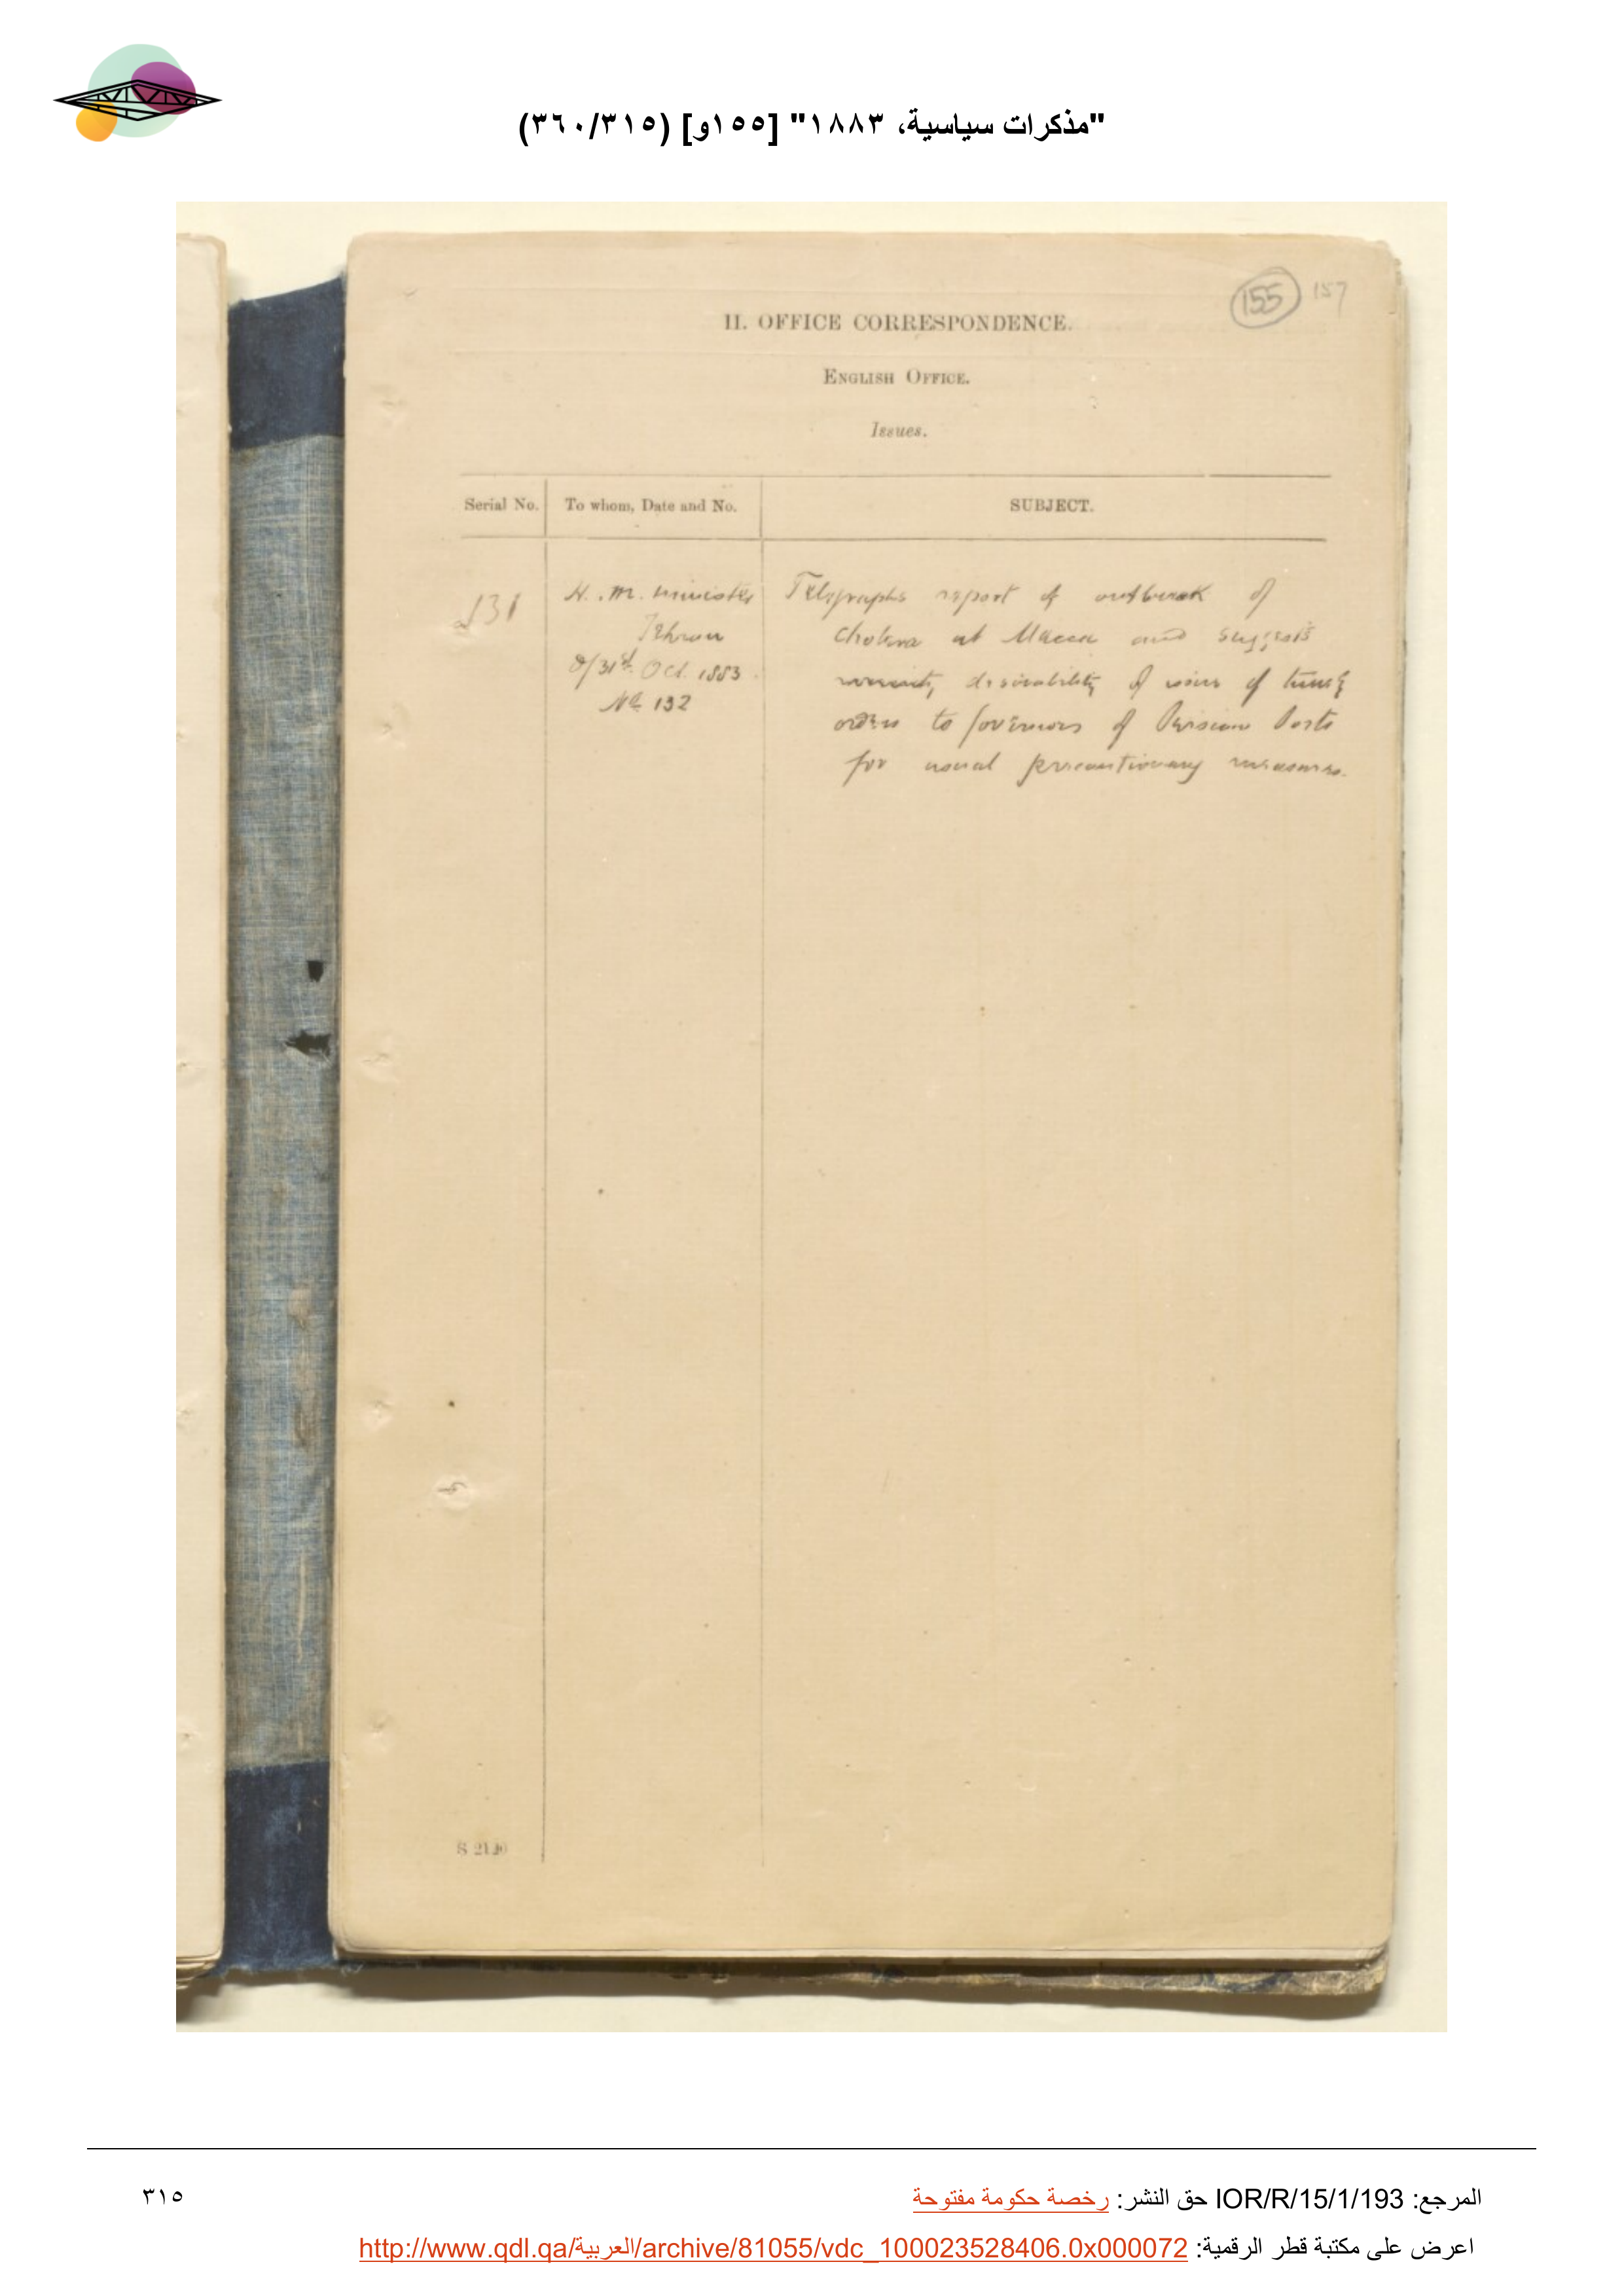 "مذكرات سياسية، ١٨٨٣" [١٥٥و] (٣٦٠/٣١٥)
155 157
II. OFFICE CORRESPONDENCE.
ENGLISH OFFICE.
Issues.
Serial No. To whom, Date and No. SUBJECT.
131
H. M. Minister
Tehran
d/31st Oct. 1883
No 192
Telegraphs report of outbreak of
Cholera at Mecca and suggests
desirability of issue of
orders to Governors of Persian Ports
for usual precautionary measures.
المرجع: IOR/R/15/1/193 حق النشر: رخصة حكومة مفتوحة
٣١٥
اعرض على مكتبة قطر الرقمية: http://www.qdl.qa/العربية/archive/81055/vdc_100023528406.0x000072